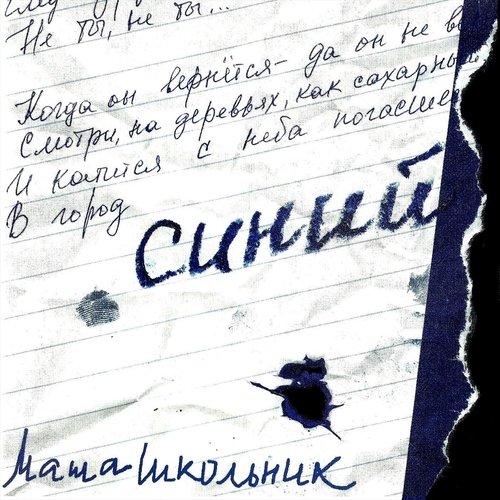 Не ты, не ты...
Когда он вернётся - да он не в
Смотри, на деревьях, как сахарный
И катится с неба погасше
В город
синий
Маша Школьник